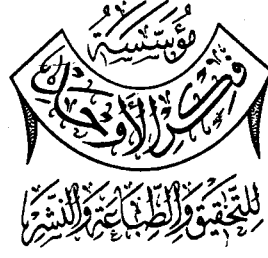 مُؤَسَّسَةُ
فِكْرُ الأَوْحَدِ
لِلتَّحْقِيقِ وَالطِّبَاعَةِ وَالنَّشْرِ